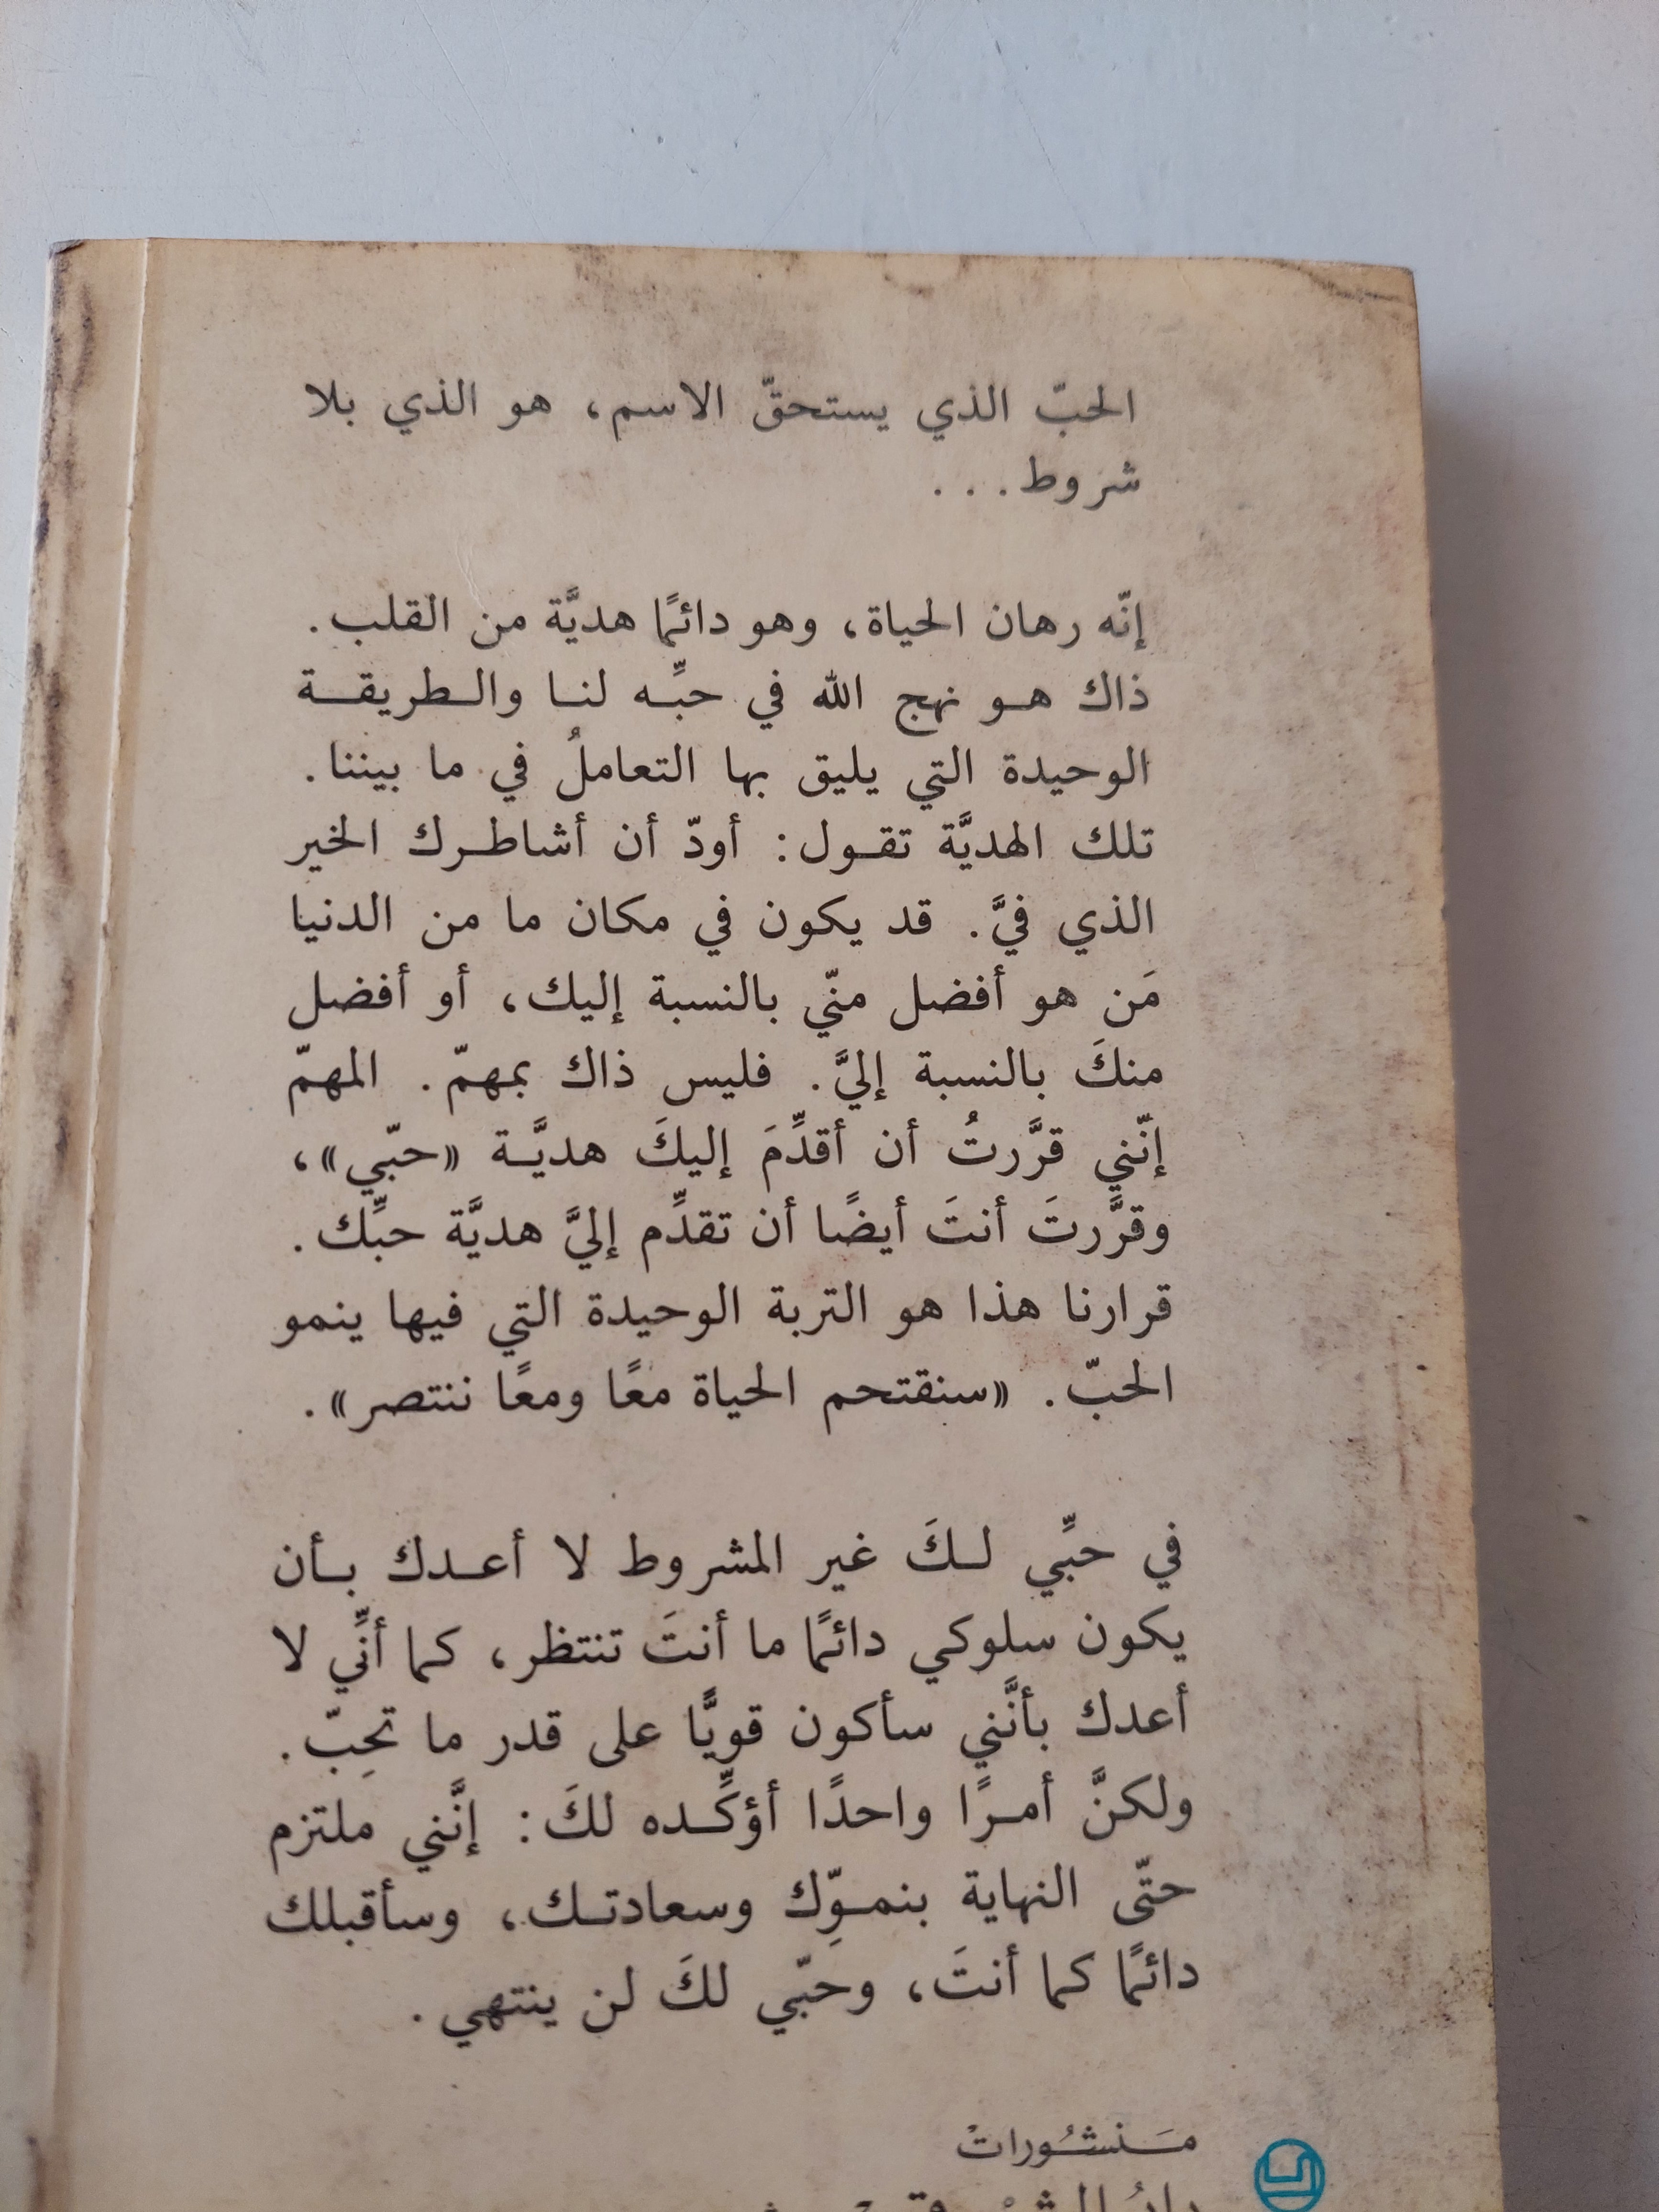 الحبّ الذي يستحقّ الاسم، هو الذي بلا
شروط...
إنّه رهان الحياة، وهو دائمًا هديَّة من القلب.
ذاك هو نهج الله في حبِّه لنا والطريقة
الوحيدة التي يليق بها التعاملُ في ما بيننا.
تلك الهديَّة تقول: أودّ أن أشاطرك الخير
الذي فيَّ. قد يكون في مكان ما من الدنيا
مَن هو أفضل منّي بالنسبة إليك، أو أفضل
منكَ بالنسبة إليَّ. فليس ذاك بمهمّ. المهمّ
إنّني قرَّرتُ أن أقدِّمَ إليكَ هديَّة «حبّي»،
وقرَّرتَ أنتَ أيضًا أن تقدِّم إليَّ هديَّة حبِّك.
قرارنا هذا هو التربة الوحيدة التي فيها ينمو
الحبّ. «سنقتحم الحياة معًا ومعًا ننتصر».
في حبِّي لكَ غير المشروط لا أعدك بأن
يكون سلوكي دائمًا ما أنتَ تنتظر، كما أنِّي لا
أعدك بأنَّني سأكون قويًّا على قدر ما تحِبّ.
ولكنَّ أمرًا واحدًا أؤكِّده لكَ: إنَّني ملتزم
حتّى النهاية بنموِّك وسعادتك، وسأقبلك
دائمًا كما أنتَ، وحبّي لكَ لن ينتهي.
مَنشُورات